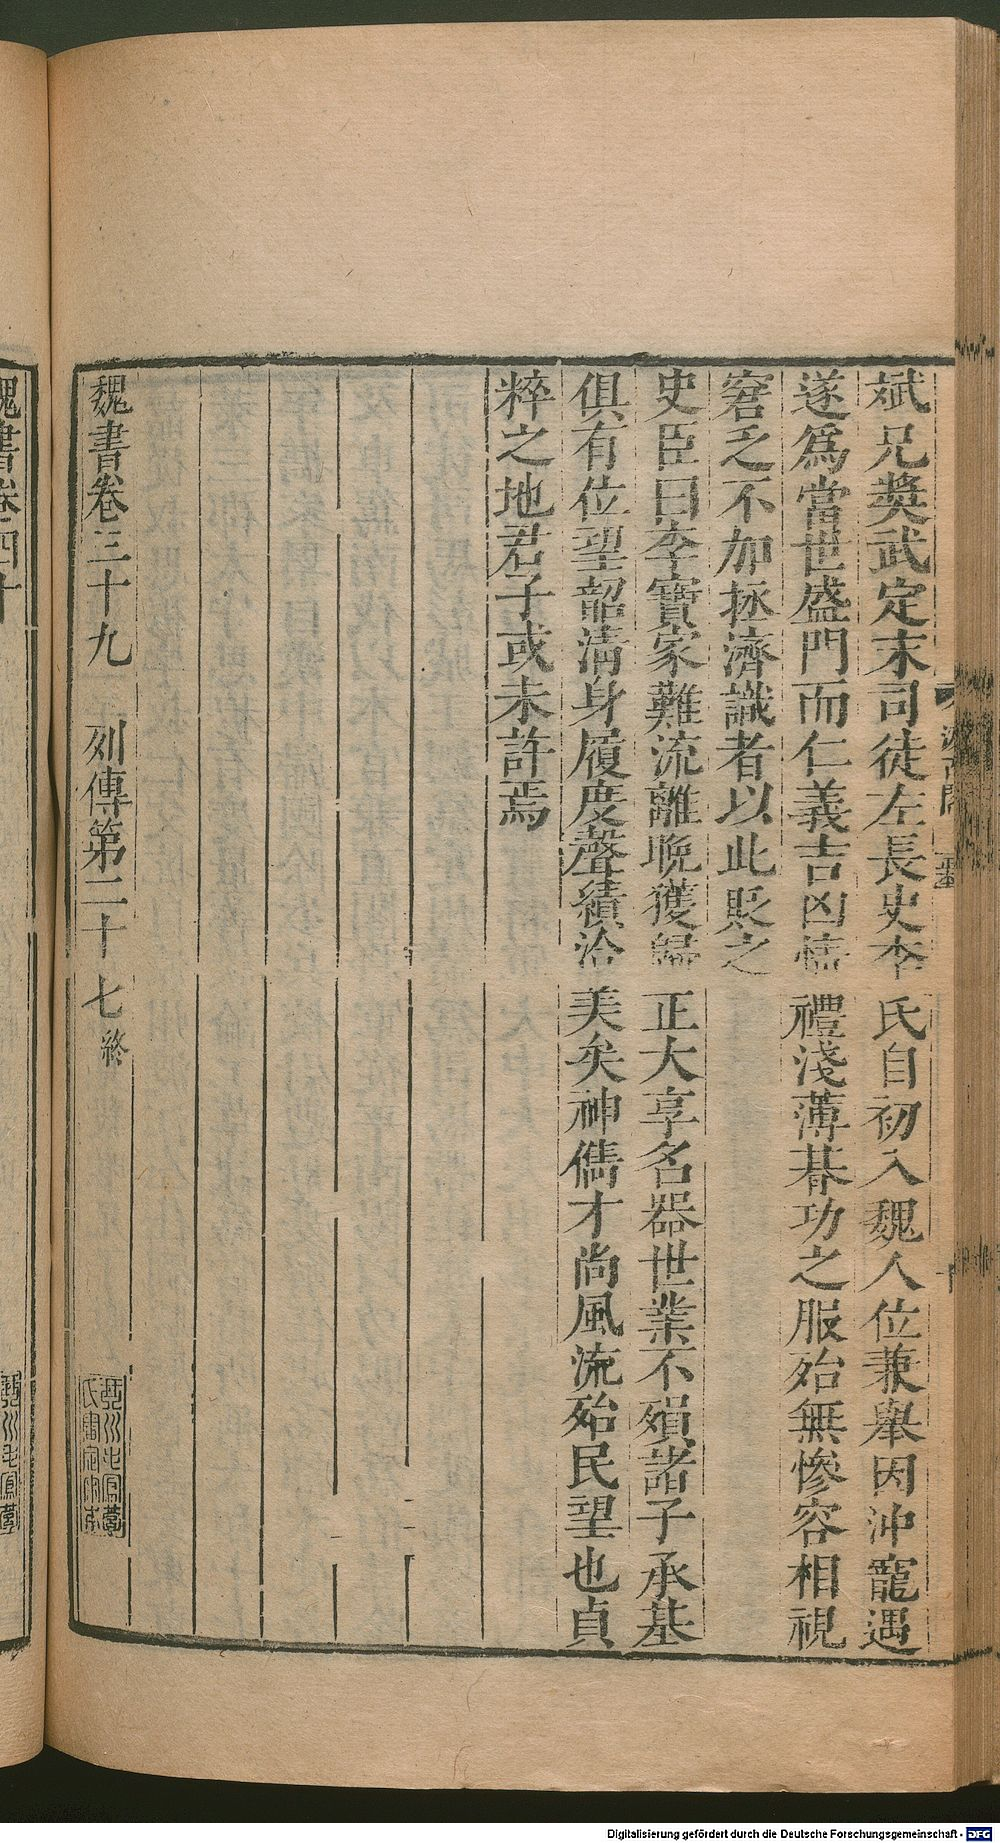 斌兄奬武定末司徒左長史李氏自初入魏人位兼舉因沖寵遇
遂爲當世盛門而仁義吉凶情禮淺薄朞功之服殆無慘容相視
窘乏不加拯濟識者以此貶之
史臣曰李寶家難流離晚獲歸正大享名器世業不殞諸子承基
俱有位望韶清身履度聲績洽美矣神儁才尚風流殆民望也貞
粹之地君子或未許焉
魏書卷三十九 列傳第二十七終
魏書卷四十
Digitalisierung gefördert durch die Deutsche Forschungsgemeinschaft - DFG